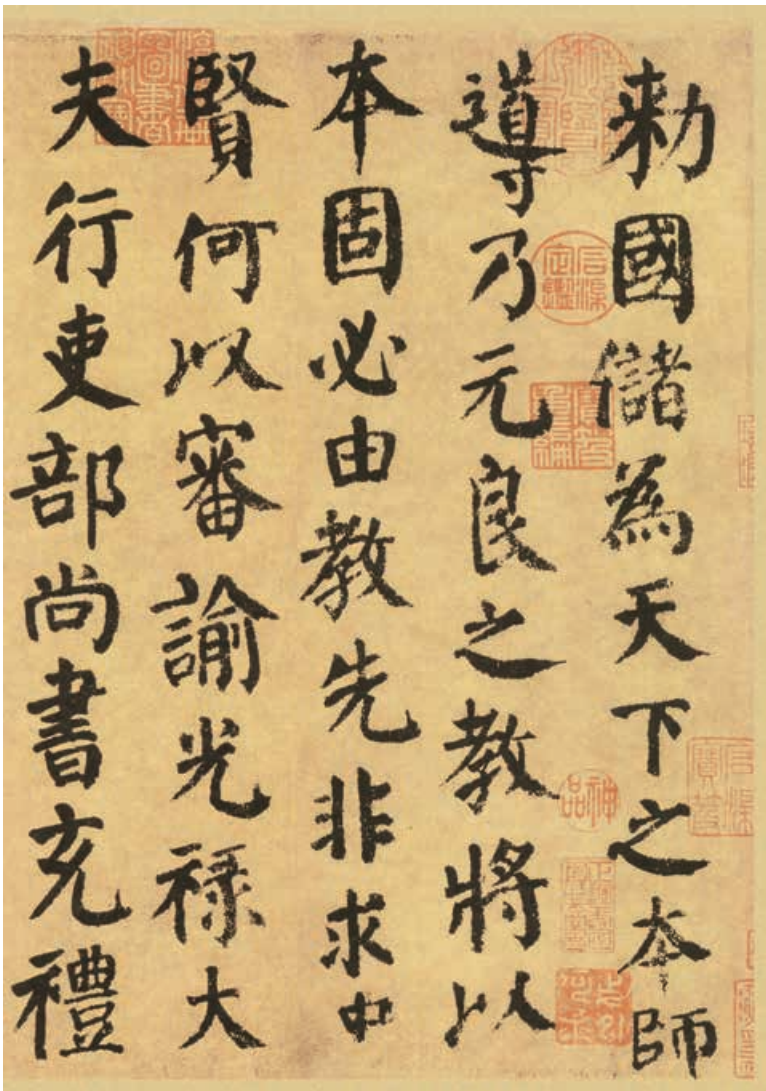 勑國儲為天下之本師
導乃元良之教將以
本固必由教先非求中
賢何以審諭光祿大
夫行吏部尚書充禮
石渠定鑑
神品
石渠寶笈